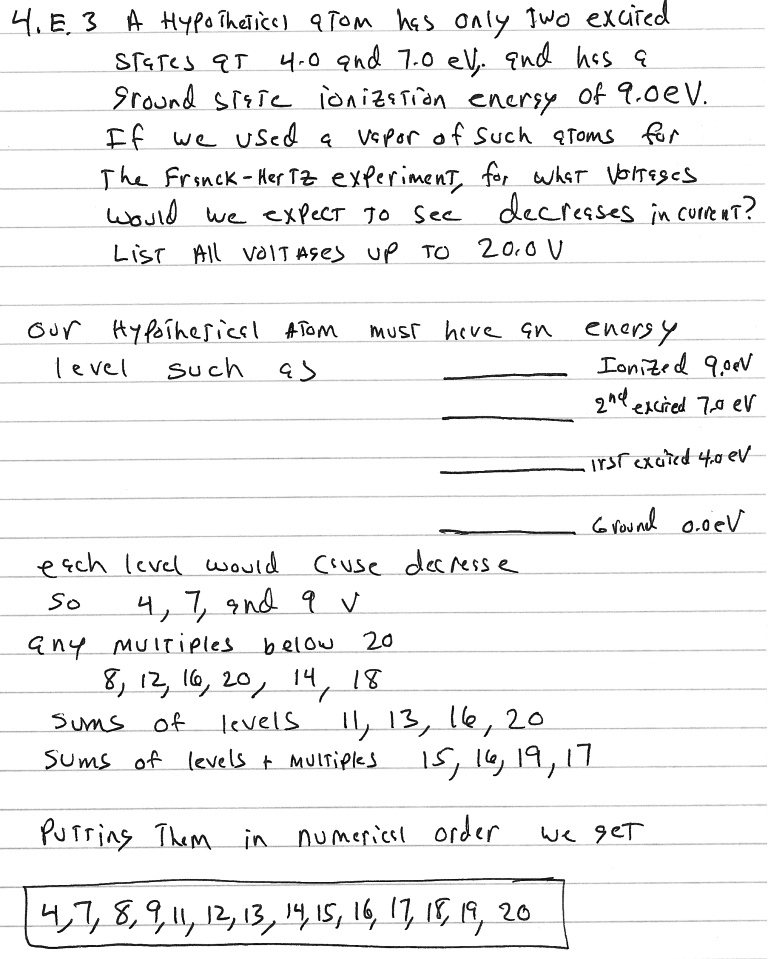 4.E.3 A Hypothetical atom has only two excited
states at 4.0 and 7.0 eV, and has a
ground state ionization energy of 9.0 eV.
If we used a vapor of such atoms for
the Franck-Hertz experiment, for what voltages
would we expect to see decreases in current?
List All voltages up to 20.0 V
our Hypothetical Atom must have an energy
level such as
Ionized 9.0eV
2nd excited 7.0 eV
1rst excited 4.0 eV
Ground 0.0eV
each level would cause decresse
so 4, 7, and 9 V
any multiples below 20
8, 12, 16, 20, 14, 18
sums of levels 11, 13, 16, 20
sums of levels + multiples 15, 16, 19, 17
Putting Them in numerical order we get
4, 7, 8, 9, 11, 12, 13, 14, 15, 16, 17, 18, 19, 20